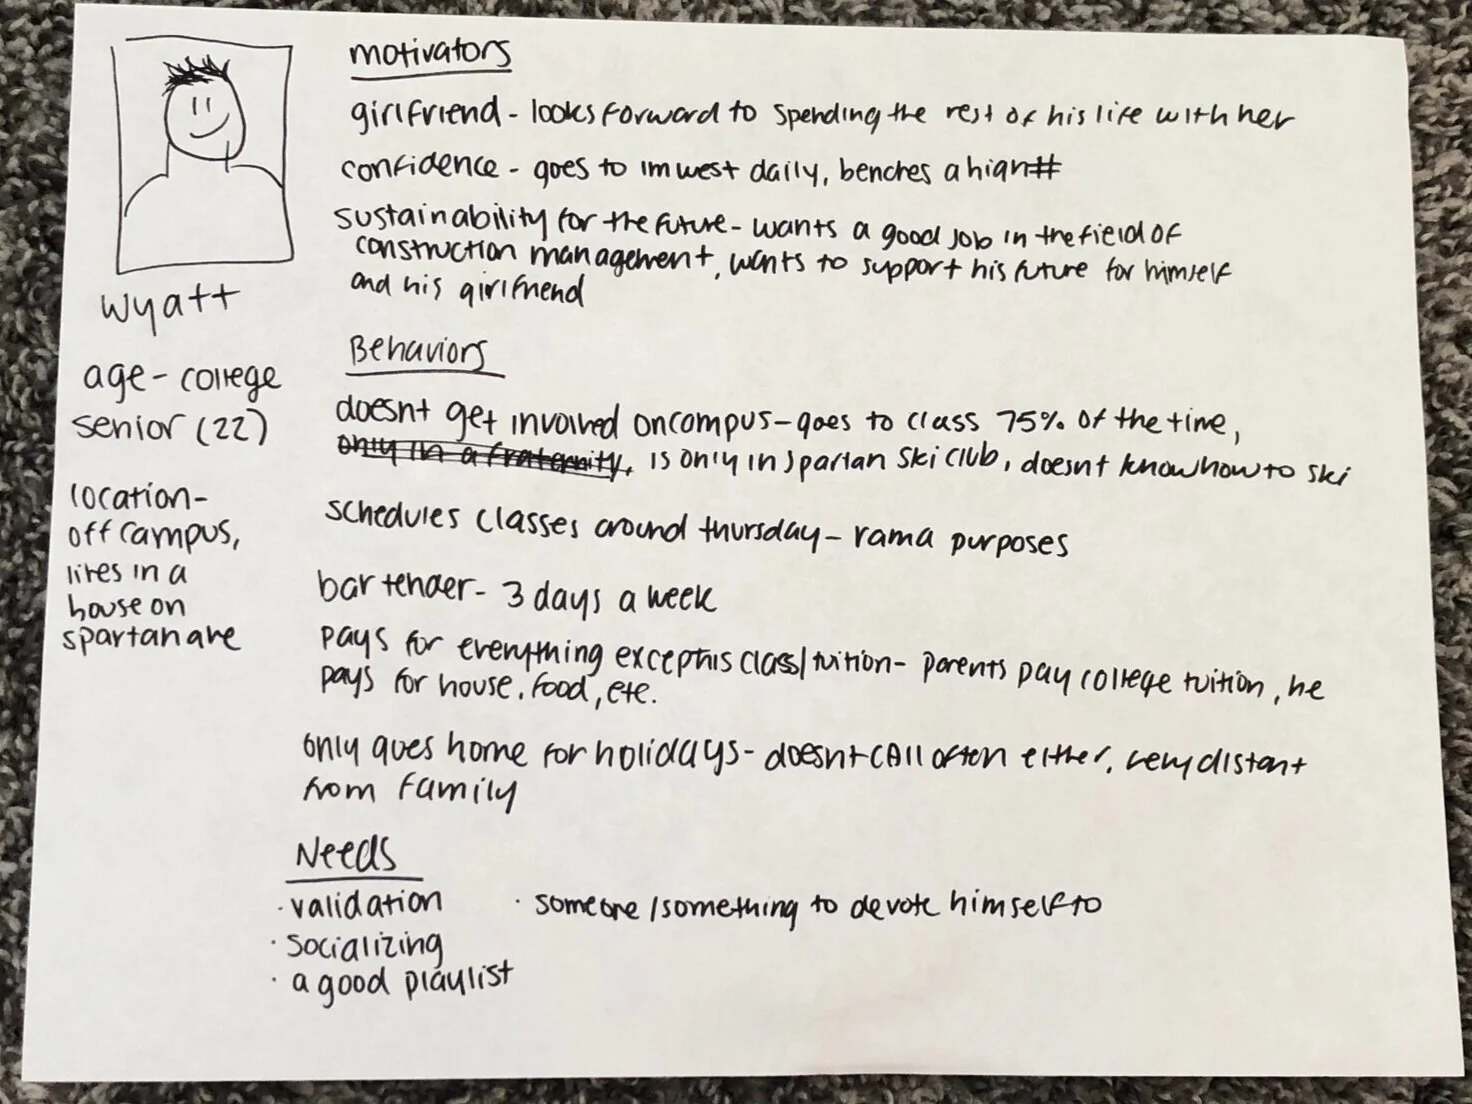 motivators
girlfriend - looks forward to spending the rest of his life with her
confidence - goes to im west daily, benches a high #
sustainability for the future - wants a good job in the field of
construction management, wants to support his future for himself
and his girlfriend
wyatt
age - college
senior (22)
location -
off campus,
lives in a
house on
spartan ave
Behaviors
doesnt get involved on campus - goes to class 75% of the time,
only in a fraternity, is only in spartan ski club, doesnt know how to ski
schedules classes around thursday - rama purposes
bartender - 3 days a week
pays for everything except his class/tuition - parents pay college tuition, he
pays for house, food, etc.
only goes home for holidays - doesnt call often either, very distant
from family
Needs
· validation
· socializing
· a good playlist
· someone/something to devote himself to